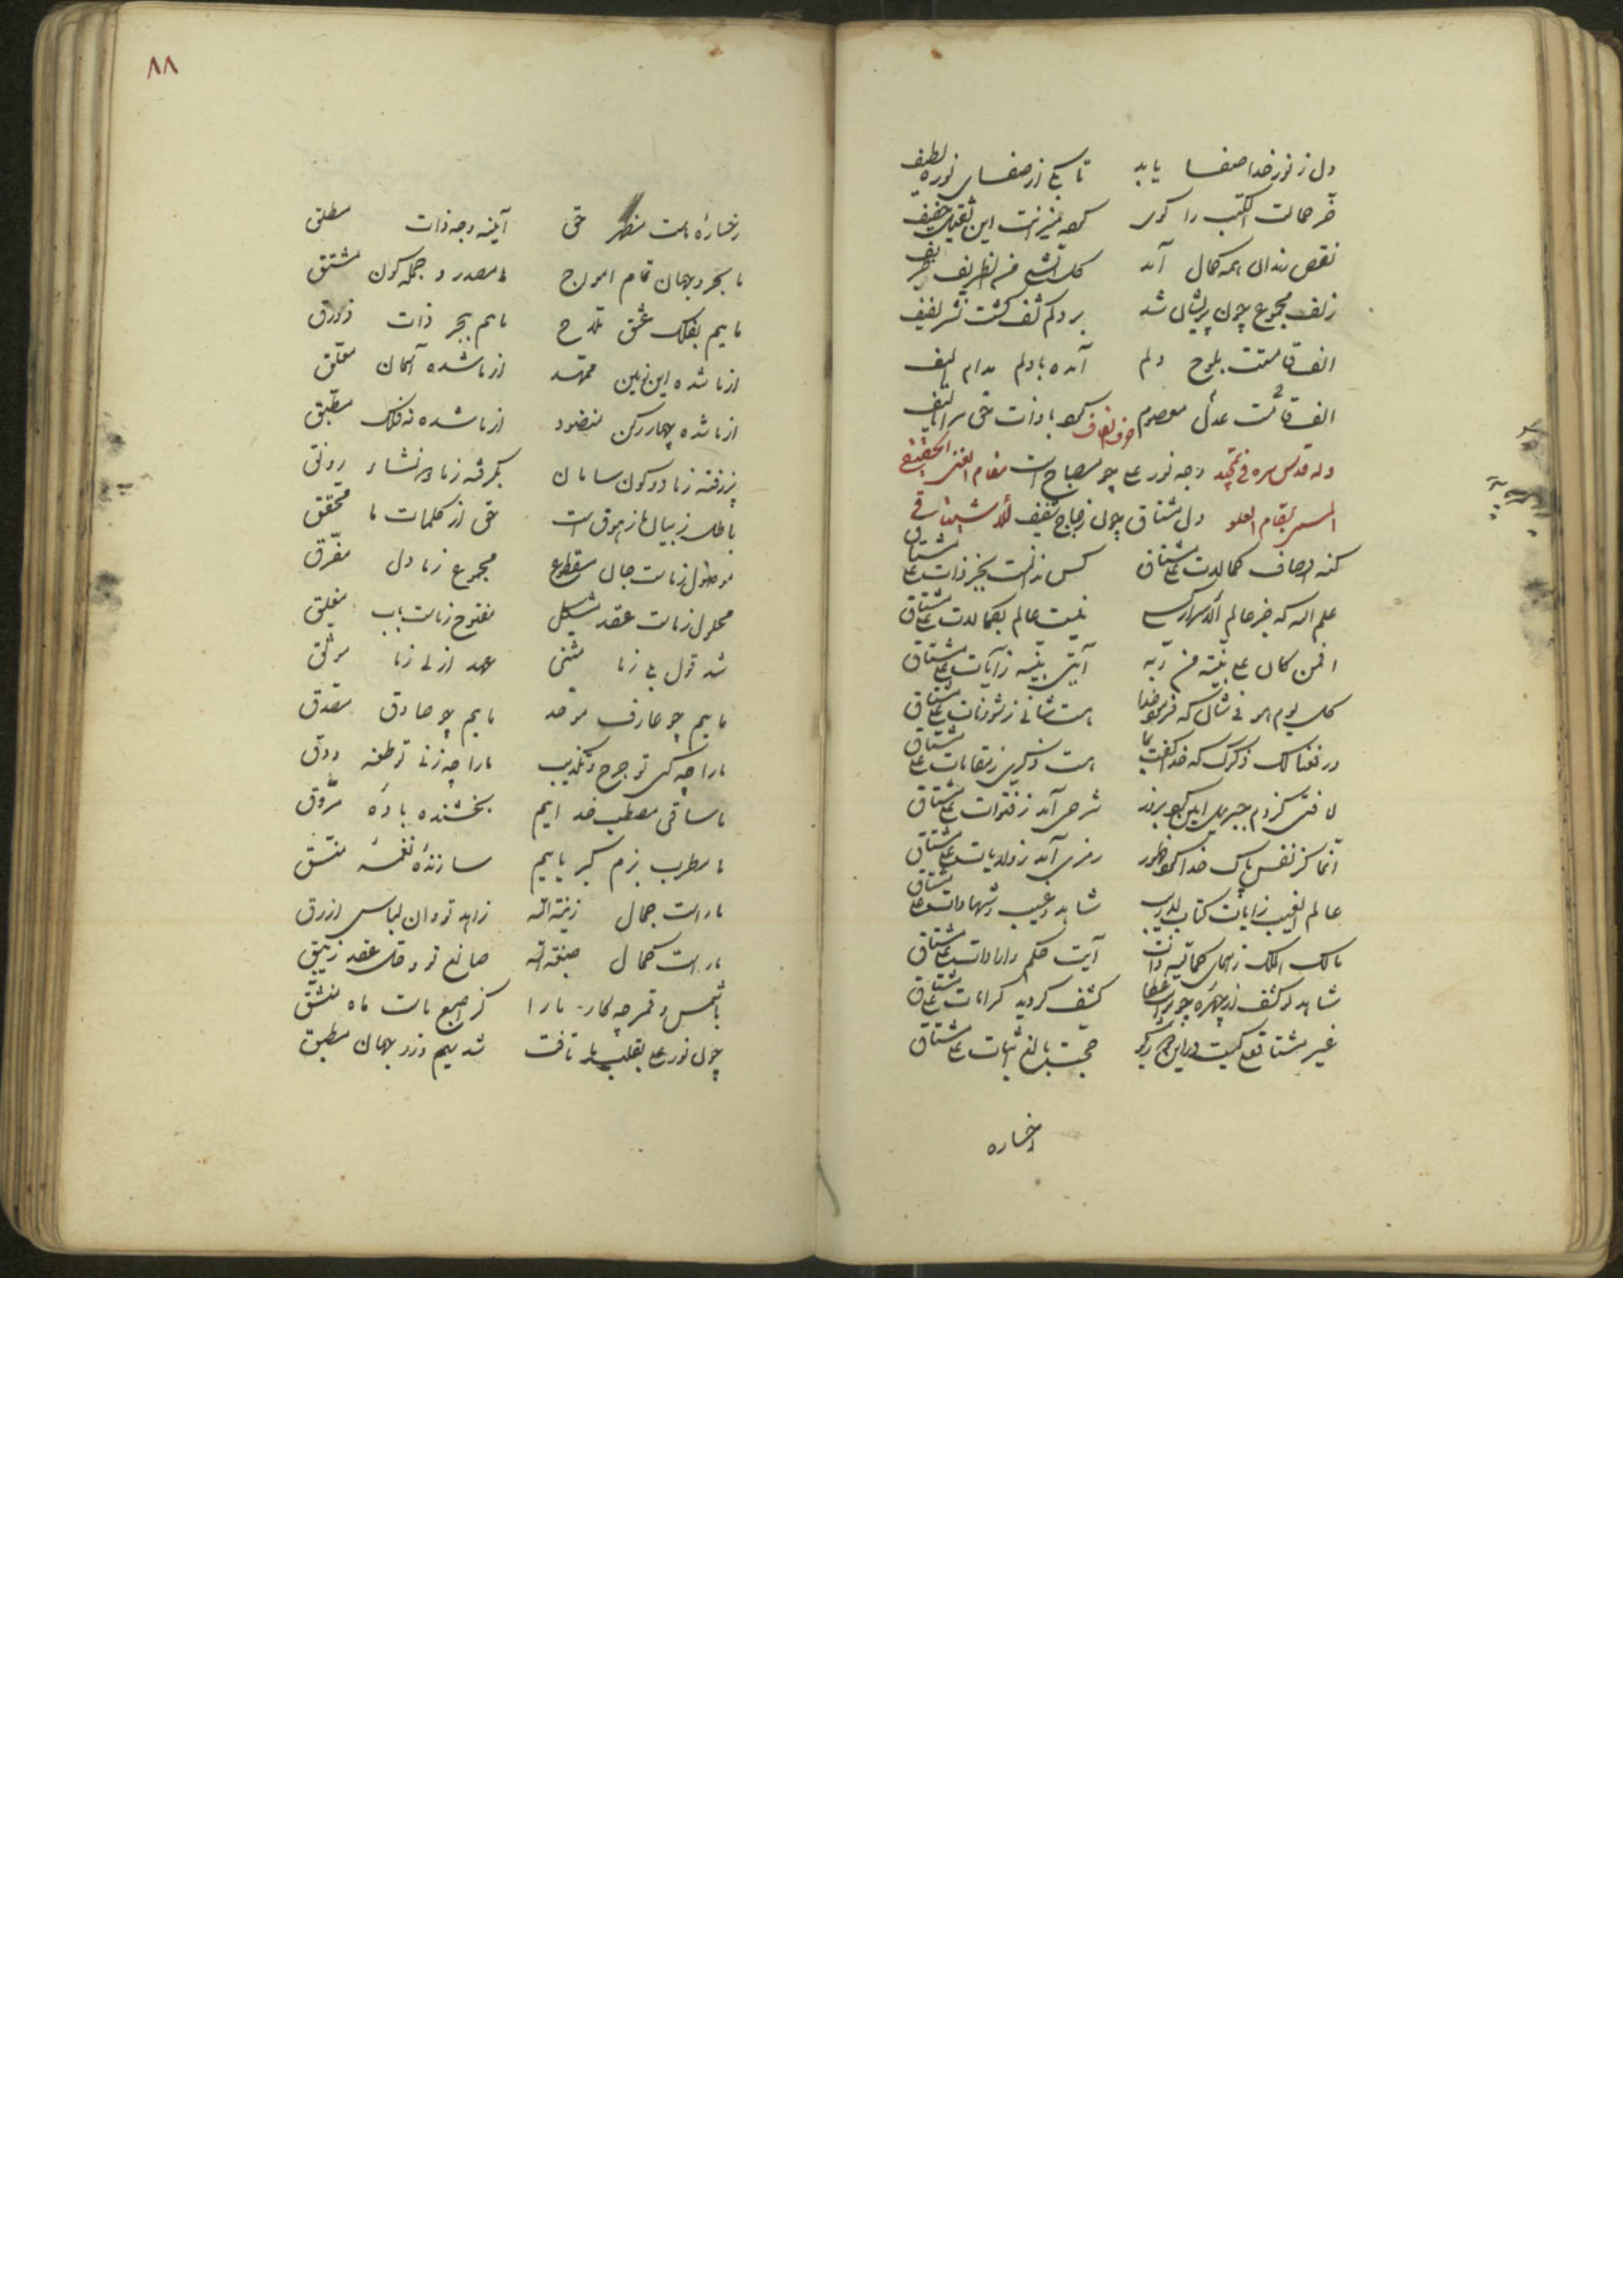 دل ز نور خدا صفا یابد تا یکی از صفای نوره لطیف
نقص رندان همه کمال آمد کل شیء من الظریف ظریف
زلف مجموع چون پریشان شد بر دلم لف گشت نشر لفیف
الف قامتت بلوح دلم آمده با دلم مدام الیف
الف قامت عدل معصوم حرف القاف با ذات حق
وله قدس سره فی وجه نور علی چو مصباح است مقام الغنی الحقیقی
دل مشتاق چون زجاج شفیف
کنه اوصاف کمالات علی مشتاق کس ندانست بجز ذات علی مشتاق
علم الله که جز عالم الاسرار کسی نیست عالم بکمالات علی مشتاق
افمن کان علی بینة من ربه آیتی بینه ز آیات علی مشتاق
کل یوم هو فی شان که فرمود خدا هست شانی ز شئونات علی مشتاق
ورفعنا لک ذکرک که خدا گفت بما هست ذکری ز مقامات علی مشتاق
لا فتی کز دم جبریل امین کرد بروز شرحی آمد ز فتوات علی مشتاق
انما کز نفس پاک خدا کرد ظهور رمزی آمد ز ولایات علی مشتاق
عالم الغیب ز آیات کتاب لاریب شاهد غیب و شهادات علی مشتاق
مالک الملک ز اسمای کمالیه ذات آیت حکم و ارادات علی مشتاق
شاهد لو کشف از چهره چو کشف گردید کرامات علی مشتاق
غیر مشتاق علی کیست در این حجت بالغ اثبات علی مشتاق
رخساره
٨٨
رخساره ماست مظهر حق آیینه وجه ذات مطلق
ما بحر و جهان تمام امواج ما مصدر و جمله کون مشتق
ماییم بفلک عشق ملاح ماییم ببحر ذات زورق
از ما شده این زمین ممهد از ما شده آسمان معلق
از ما شده چهار رکن منضود از ما شده نه فلک مطبق
پذرفته ز ما دو کون سامان بگرفته ز ما دو نشاء رونق
باطل ز بیان ما زهوق است حق از کلمات ما محقق
موصول ز ماست حبال مقطوع مجموع ز ما دل مفرق
محلول ز ماست عقد مشکل مفتوح ز ماست باب مغلق
شد قول بلی ز ما مثنی عهد ازلی ز ما موثق
ماییم چو عارف موحد ماییم چو صادق مصدق
ما را چه کنی تو جرح و تکذیب ما را چه زنی تو طعنه و دق
ما ساقی مصطب خداییم بخشنده باده مروق
ما مطرب بزم کبریاییم سازنده نغمه منسق
ما راست جمال زینة الله زاهد تو و آن لباس ازرق
ما راست کمال صبغة الله صانع تو و حل عقد زیبق
با شمس و قمر چه کار ما را کز اصبع ماست ماه منشق
چون نور علی بقلب ما تافت شد بیم و زو جهان مطبق